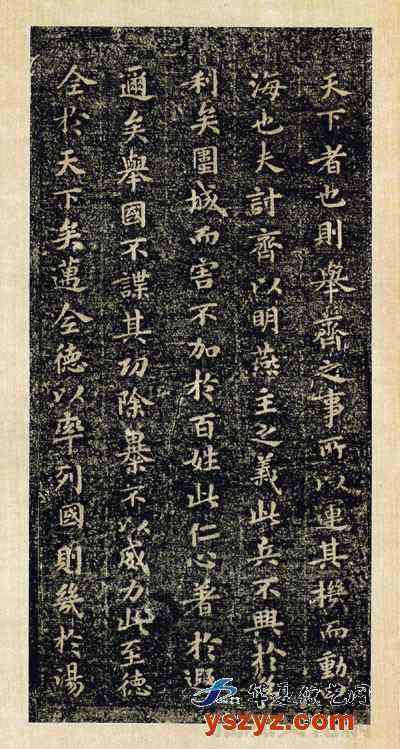 天下者也則舉齊之事所以運其機而動四
海也夫討齊以明燕主之義此兵不興於為
利矣圍城而害不加於百姓此仁心著於遐
邇矣舉國不謀其功除暴不以威力此至德
全於天下矣邁全德以率列國則幾於湯
yszyz.com